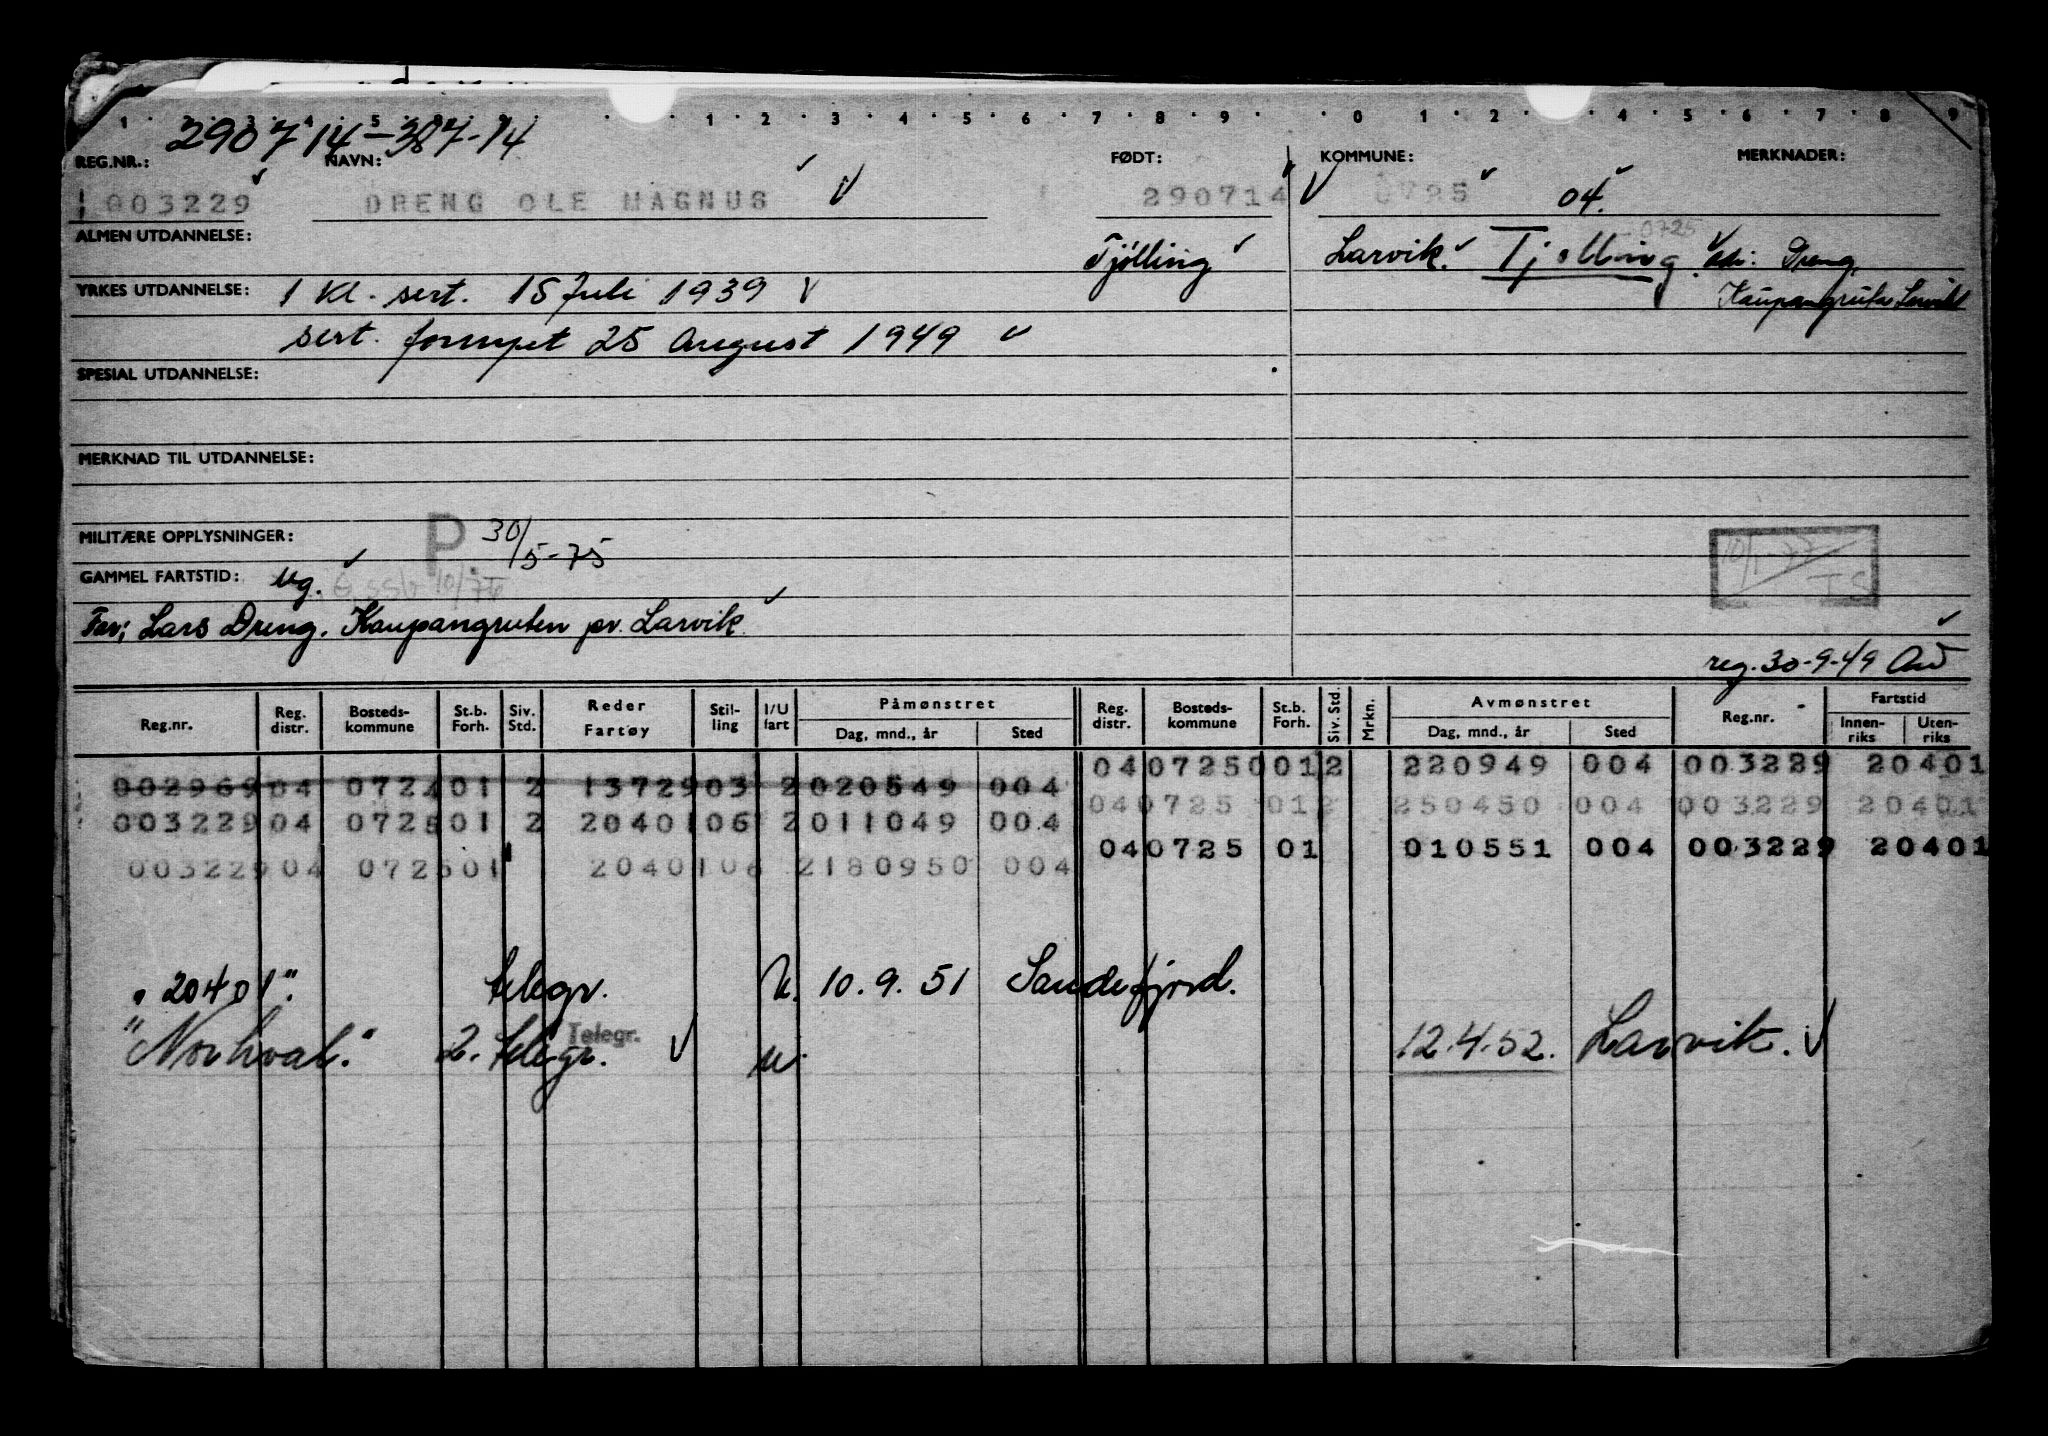 290714-387-14
REG.NR.: NAVN: FØDT: KOMMUNE: MERKNADER:
003229 DRENG OLE MAGNUS 290714 0725 04.
ALMEN UTDANNELSE: Tjølling Larvik. Tjølling 0725 adr: Dreng,
YRKES UTDANNELSE: 1 kl. sert. 15 Juli 1939 Kaupangruta Larvik
sert. fornyet 25 August 1949
SPESIAL UTDANNELSE:
MERKNAD TIL UTDANNELSE:
MILITÆRE OPPLYSNINGER: P 30/5-75
10/1-77 TS
GAMMEL FARTSTID: ug.
Far; Lars Dreng. Kaupangruten pr. Larvik
reg. 30-9-49
Reg.nr. Reg. distr. Bosteds-kommune St.b. Forh. Siv. Std. Reder Fartøy Stil-ling I/U fart Påmønstret Dag, mnd., år Sted Reg. distr. Bosteds-kommune St.b. Forh. Siv. Std. Mrkn. Avmønstret Dag, mnd., år Sted Reg.nr. Fartstid Innen-riks Uten-riks
002969 04 0724 01 2 13729 03 2 020549 004 04 07250 01 2 220949 004 003229 20401
003229 04 0725 01 2 20401 06 2 011049 004 04 0725 01 2 250450 004 003229 20401
003229 04 0725 01 20401 06 2 180950 004 04 0725 01 010551 004 003229 20401
"20401". telegr. U. 10.9.51 Sandefjord.
"Norhval." 2. telegr. Telegr. u. 12.4.52. Larvik.